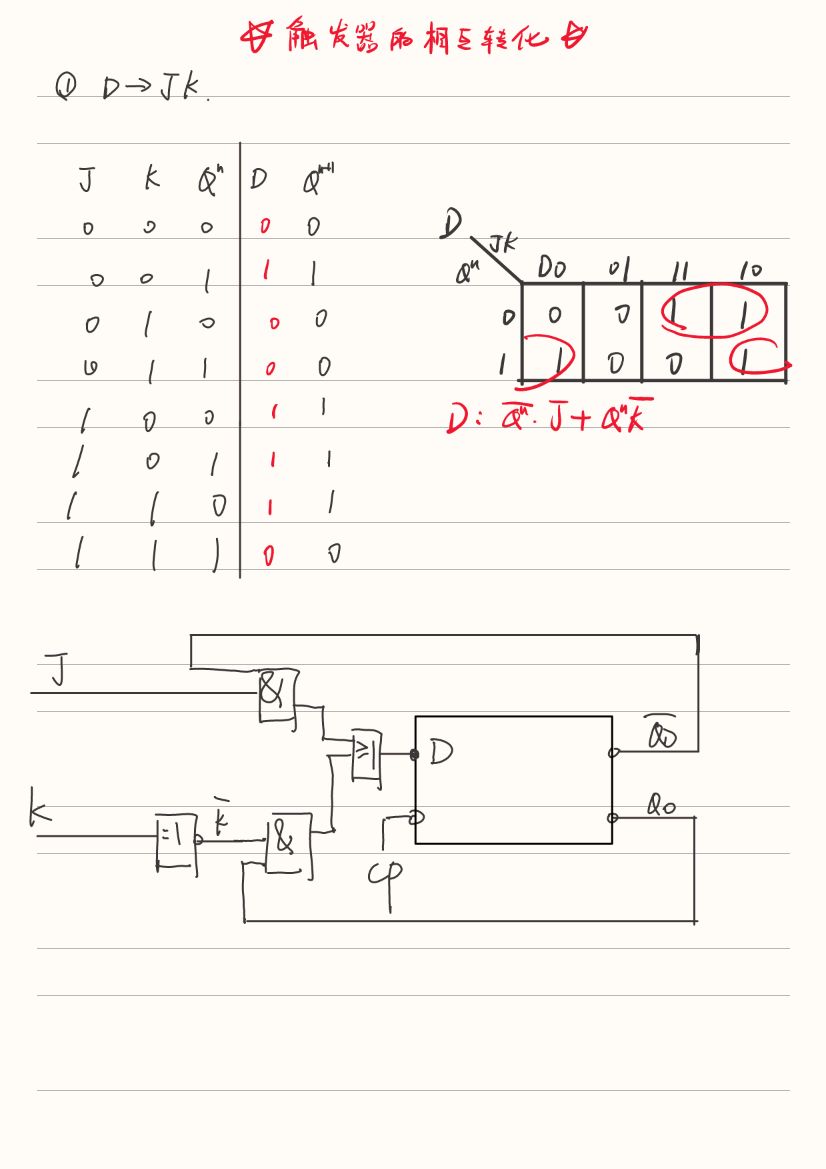 ☆ 触发器的相互转化 ☆
① D→JK.
J K Qⁿ D Qⁿ⁺¹
0 0 0 0 0
0 0 1 1 1
0 1 0 0 0
0 1 1 0 0
1 0 0 1 1
1 0 1 1 1
1 1 0 1 1
1 1 1 0 0
D
JK
Qⁿ 00 01 11 10
0 0 0 1 1
1 1 0 0 1
D: Q̅ⁿ · J̅ + QⁿK̅
J̅
&
≥1
D
Q̅0
Q0
K
=1
K̅
&
CP